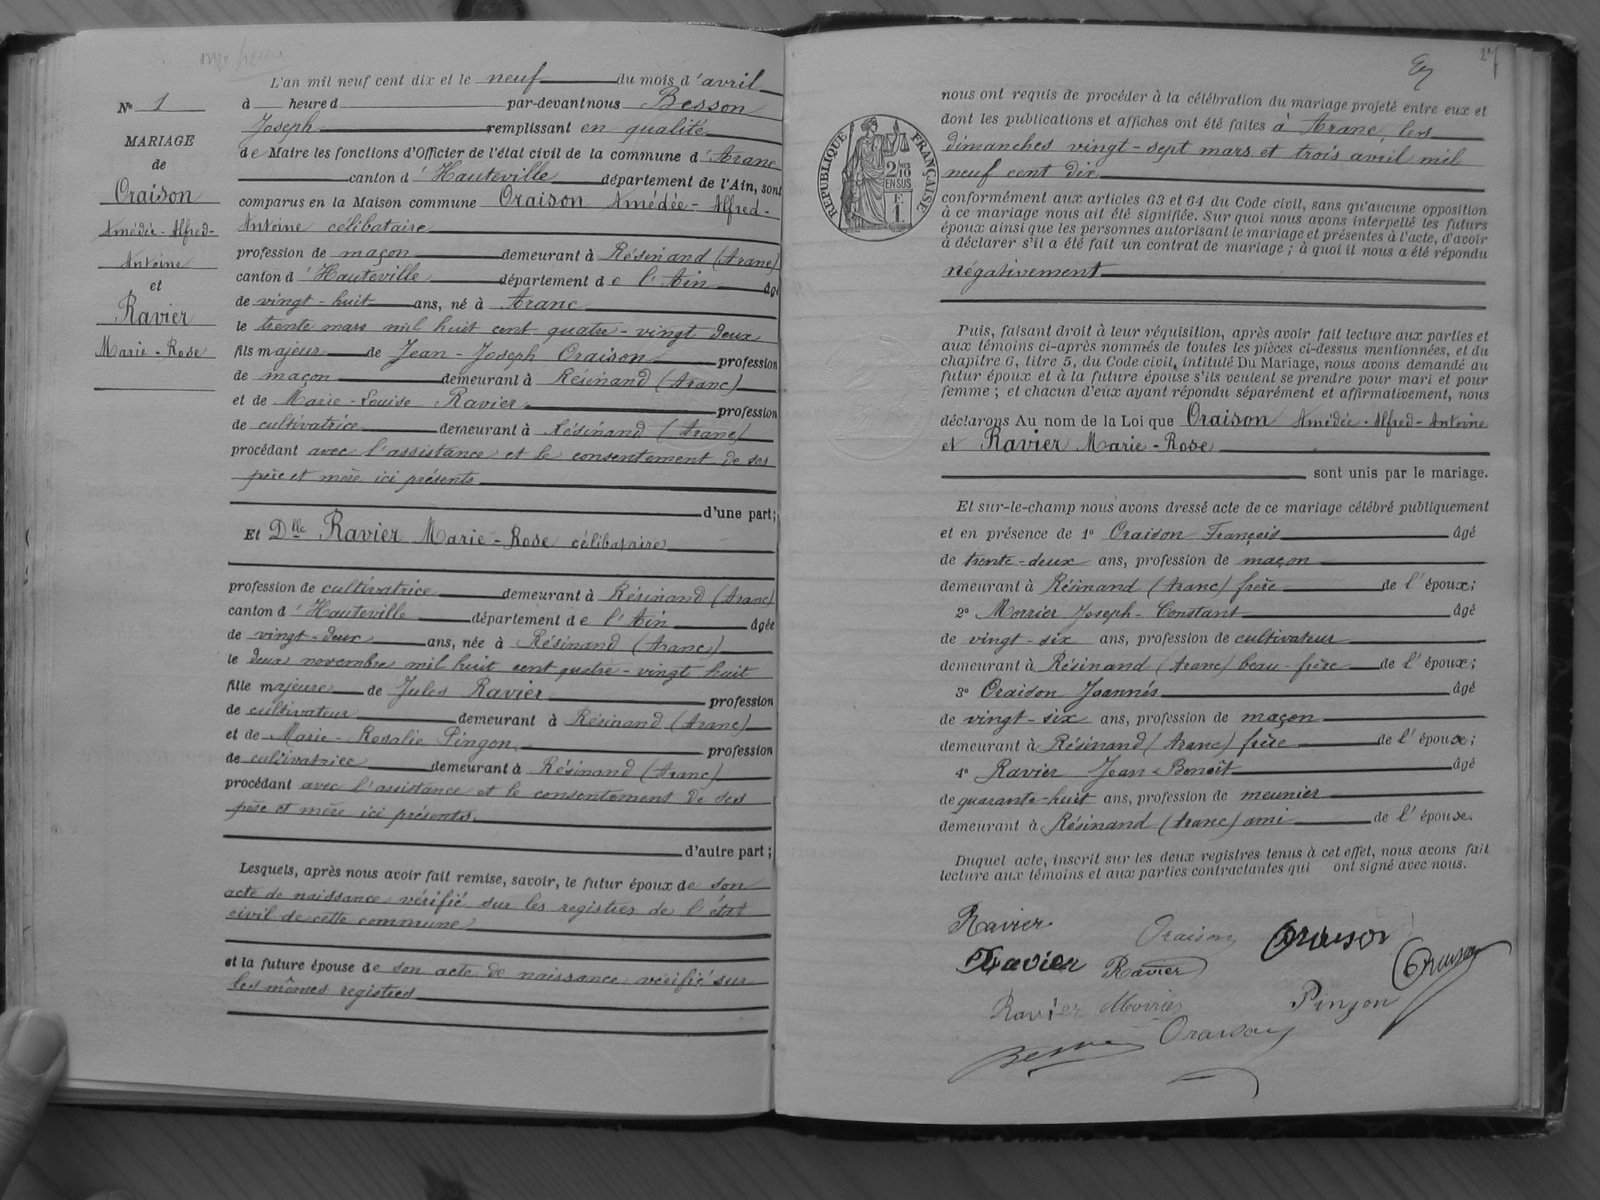 L'an mil neuf cent dix et le neuf du mois d'avril
à heure d par-devant nous Besson
Joseph remplissant en qualité
de Maire les fonctions d'Officier de l'état civil de la commune d'Aranc
canton d'Hauteville département de l'Ain, sont
comparus en la Maison commune Oraison Amédée-Alfred-
Antoine célibataire
profession de maçon demeurant à Résinand (Aranc)
canton d'Hauteville département de l'Ain âgé
de vingt-huit ans, né à Aranc
le trente mars mil huit cent quatre-vingt deux
fils majeur de Jean-Joseph Oraison profession
de maçon demeurant à Résinand (Aranc)
et de Marie-Louise Ravier profession
de cultivatrice demeurant à Résinand (Aranc)
procédant avec l'assistance et le consentement de ses
père et mère ici présents
d'une part;
Et Dlle Ravier Marie-Rose célibataire
profession de cultivatrice demeurant à Résinand (Aranc)
canton d'Hauteville département de l'Ain âgée
de vingt-deux ans, née à Résinand (Aranc)
le deux novembre mil huit cent quatre-vingt huit
fille majeure de Jules Ravier profession
de cultivateur demeurant à Résinand (Aranc)
et de Marie-Rosalie Pingon profession
de cultivatrice demeurant à Résinand (Aranc)
procédant avec l'assistance et le consentement de ses
père et mère ici présents.
d'autre part;
Lesquels, après nous avoir fait remise, savoir, le futur époux de son
acte de naissance vérifié sur les registres de l'état
civil de cette commune
et la future épouse de son acte de naissance vérifié sur
les mêmes registres
No 1
MARIAGE
de
Oraison
Amédée-Alfred-
Antoine
et
Ravier
Marie-Rose
27
nous ont requis de procéder à la célébration du mariage projeté entre eux et
dont les publications et affiches ont été faites à Aranc les
dimanches vingt-sept mars et trois avril mil
neuf cent dix
conformément aux articles 63 et 64 du Code civil, sans qu'aucune opposition
à ce mariage nous ait été signifiée. Sur quoi nous avons interpellé les futurs
époux ainsi que les personnes autorisant le mariage et présentes à l'acte, d'avoir
à déclarer s'il a été fait un contrat de mariage; à quoi il nous a été répondu
négativement
Puis, faisant droit à leur réquisition, après avoir fait lecture aux parties et
aux témoins ci-après nommés de toutes les pièces ci-dessus mentionnées, et du
chapitre 6, titre 5, du Code civil, intitulé Du Mariage, nous avons demandé au
futur époux et à la future épouse s'ils veulent se prendre pour mari et pour
femme; et chacun d'eux ayant répondu séparément et affirmativement, nous
déclarons Au nom de la Loi que Oraison Amédée-Alfred-Antoine
et Ravier Marie-Rose
sont unis par le mariage.
Et sur-le-champ nous avons dressé acte de ce mariage célébré publiquement
et en présence de 1° Oraison François âgé
de trente-deux ans, profession de maçon
demeurant à Résinand (Aranc) frère de l'époux;
2° Morrier Joseph-Constant âgé
de vingt-six ans, profession de cultivateur
demeurant à Résinand (Aranc) beau-frère de l'époux;
3° Oraison Joannès âgé
de vingt-six ans, profession de maçon
demeurant à Résinand (Aranc) frère de l'époux;
4° Ravier Jean-Benoît âgé
de quarante-huit ans, profession de meunier
demeurant à Résinand (Aranc) ami de l'épouse.
Duquel acte, inscrit sur les deux registres tenus à cet effet, nous avons fait
lecture aux témoins et aux parties contractantes qui ont signé avec nous.
Ravier Oraison Oraison
Ravier Ravier Oraison
Ravier Morrier Pingon
Besson Oraison
RÉPUBLIQUE FRANÇAISE
2/10
EN SUS
F
1.